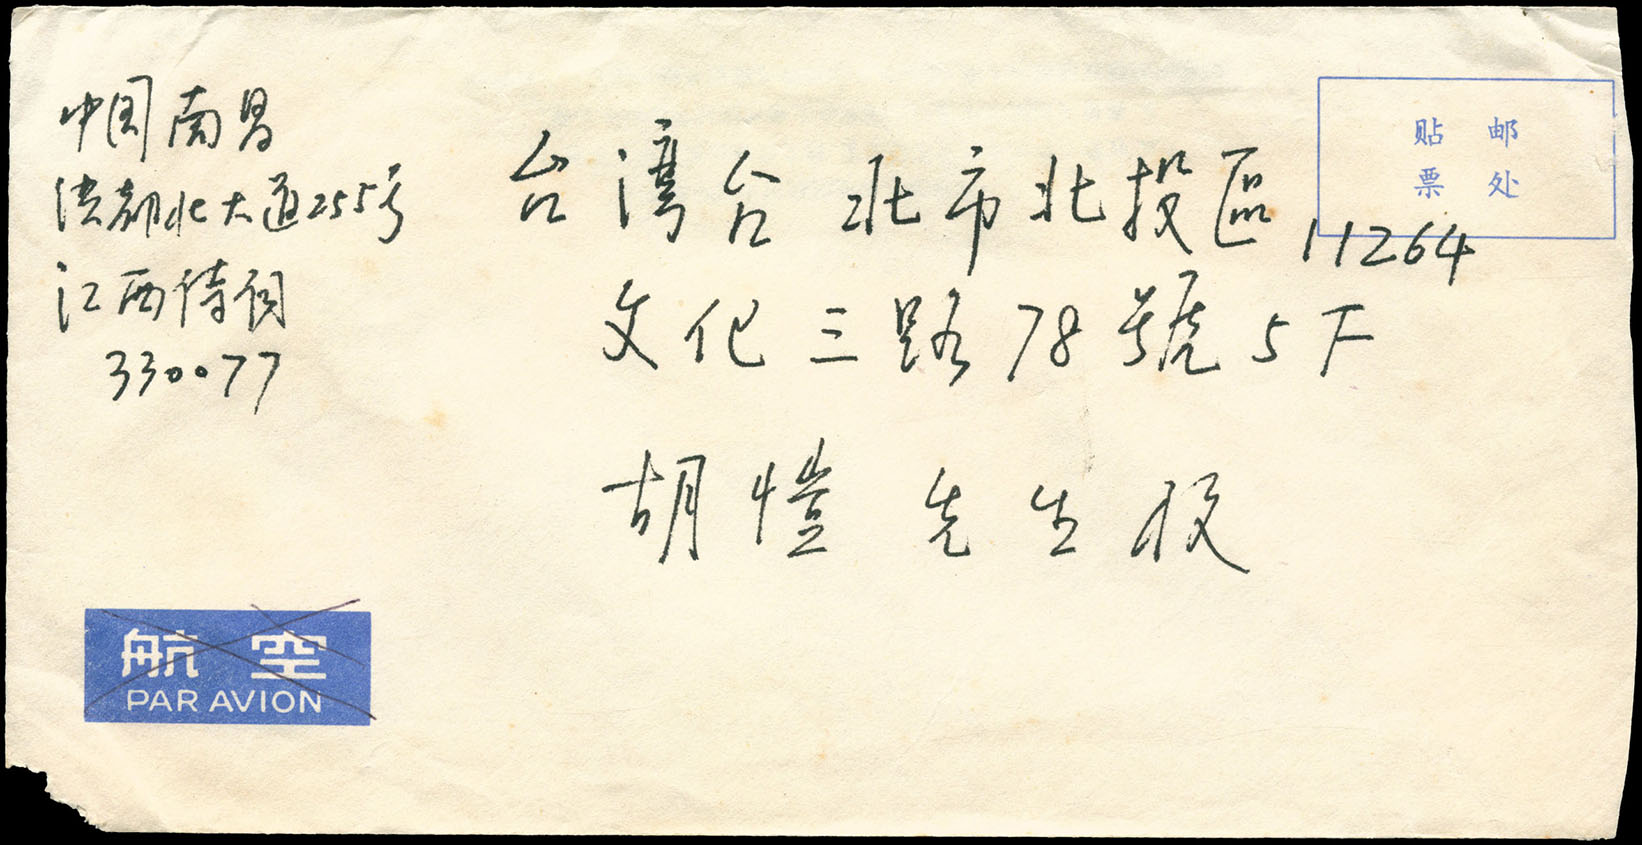 中国南昌
洪都北大道255号
江西诗词
330077
贴 邮
票 处
台湾台北市北投區 11264
文化三路78號5F
胡愷先生收
航空
PAR AVION